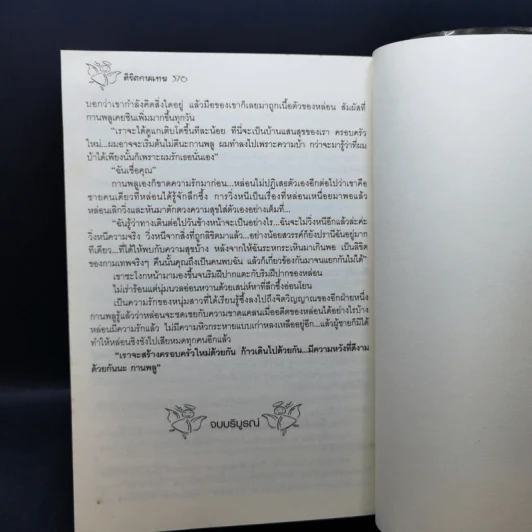 ลิขิตกามเทพ 376
บอกว่าเขากำลังคิดสิ่งใดอยู่ แล้วมือของเขาก็เลยมาถูกเนื้อตัวของหล่อน สัมผัสที่
กานพลูเคยชินเพิ่มมากขึ้นทุกวัน
"เราจะได้ดูแกเติบโตขึ้นทีละน้อย ที่นี่จะเป็นบ้านแสนสุขของเรา ครอบครัว
ใหม่...ผมอาจจะเริ่มต้นไม่ดีนะกานพลู ผมทำลงไปเพราะความบ้า กว่าจะมารู้ว่าที่ผม
บ้าได้เพียงนั้นก็เพราะผมรักเธอนั่นเอง"
"ฉันเชื่อคุณ"
กานพลูเองก็ขาดความรักมาก่อน...หล่อนไม่ปฏิเสธตัวเองอีกต่อไปว่าเขาคือ
ชายคนเดียวที่หล่อนได้รู้จักลึกซึ้ง การวิ่งหนีเป็นเรื่องที่หล่อนเหนื่อยมาพอแล้ว
หล่อนเลิกวิ่งและหันมาตักตวงความสุขใส่ตัวเองอย่างเต็มที่...
"ฉันรู้ว่าทางเดินต่อไปวันข้างหน้าจะเป็นอย่างไร...ฉันจะไม่วิ่งหนีอีกแล้วล่ะค่ะ
วิ่งหนีความจริง วิ่งหนีจากสิ่งที่ถูกลิขิตมาแล้ว...อย่างน้อยสวรรค์ก็ยังปรานีฉันอยู่มาก
ทีเดียว...ที่ได้ให้พบกับความสุขบ้าง หลังจากให้ฉันระหกระเหินมาเกินพอ เป็นลิขิต
ของกามเทพจริงๆ คืนนั้นคุณถึงเป็นคนพบฉัน แล้วก็เกี่ยวข้องกันมาจนแยกกันไม่ได้"
เขาชะโงกหน้ามามองขึ้นจนริมฝีปากแตะกับริมฝีปากของหล่อน
ไม่เร่าร้อนแต่นุ่มนวลอ่อนหวานด้วยเสน่ห์หาที่ลึกซึ้งอ่อนโยน
เป็นความรักของหนุ่มสาวที่ได้เรียนรู้ซึ้งลงไปถึงจิตวิญญาณของอีกฝ่ายหนึ่ง
กานพลูรู้แล้วว่าหล่อนจะชดเชยกับความขาดแคลนเมื่ออดีตของหล่อนได้อย่างไรบ้าง
หล่อนมีความรักแล้ว ไม่มีความหิวกระหายแบบเก่าหลงเหลืออยู่อีก...แล้วผู้ชายก็มิได้
ทำให้หล่อนชิงชังไปเสียหมดทุกคนอีกแล้ว
"เราจะสร้างครอบครัวใหม่ด้วยกัน ก้าวเดินไปด้วยกัน...มีความหวังที่ดีงาม
ด้วยกันนะ กานพลู"
จบบริบูรณ์